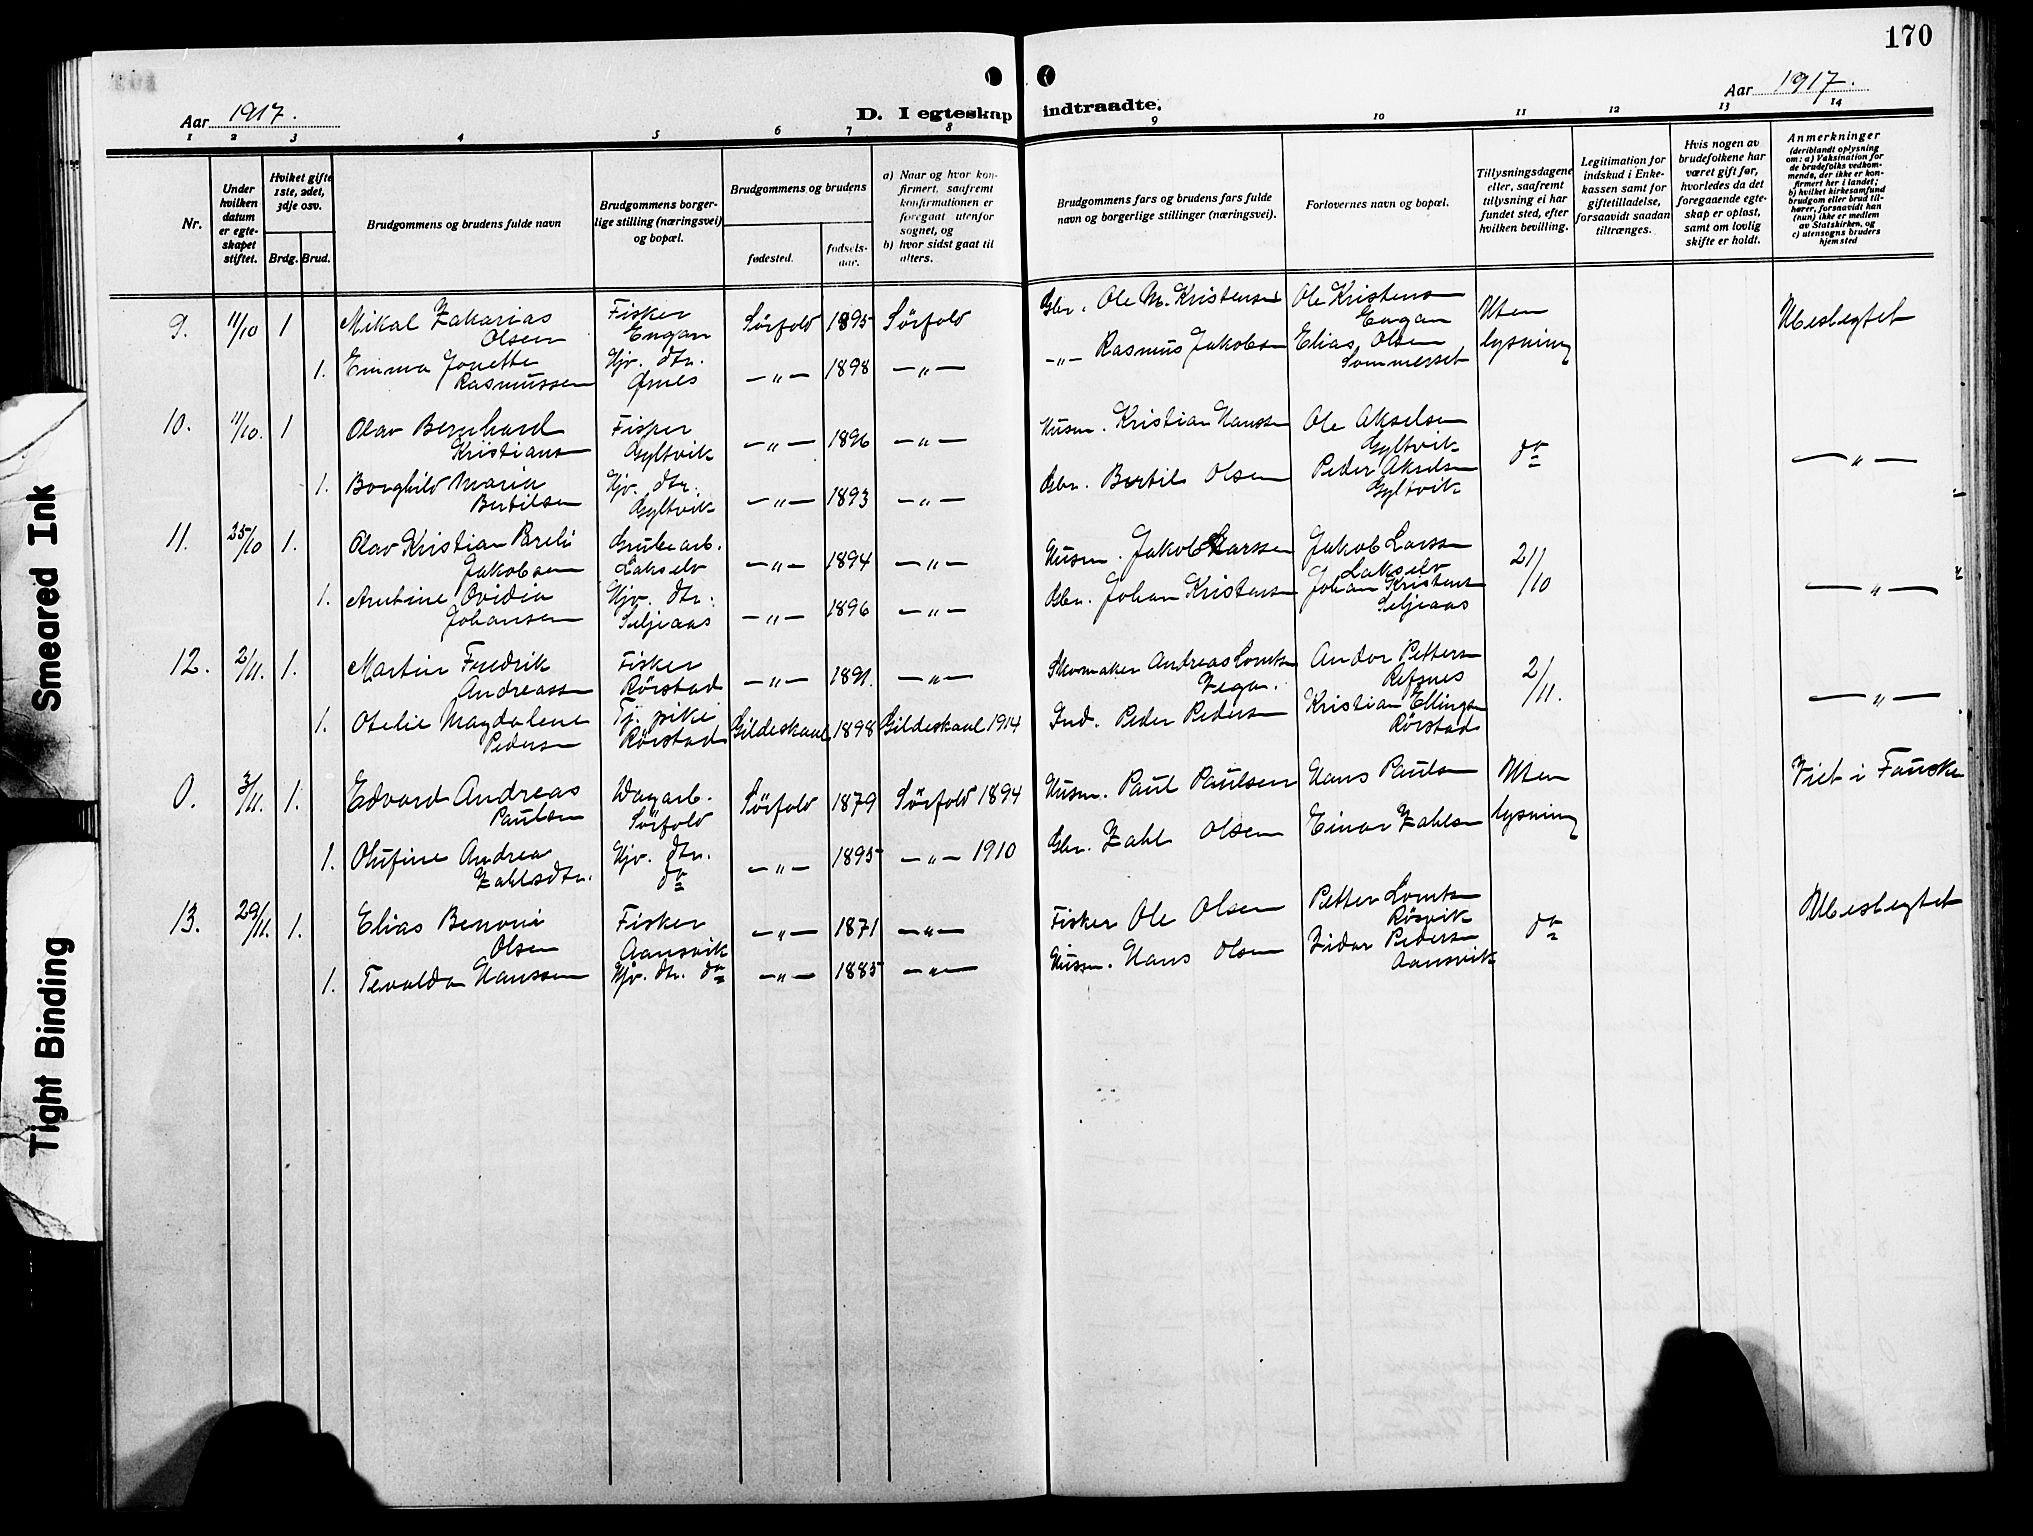 170
Aar 1917.
D. I egteskap indtraadte.
Aar 1917.
1 2 3 4 5 6 7 8 9 10 11 12 13 14
Nr.
Under hvilken datum er egteskapet stiftet.
Hviket gifte 1ste, 2det, 3dje osv.
Brdg. Brud.
Brudgommens og brudens fulde navn
Brudgommens borgerlige stilling (næringsvei) og bopæl.
Brudgommens og brudens
fødested.
fødselsaar.
a) Naar og hvor konfirmert, saafremt konfirmationen er foregaat utenfor sognet, og
b) hvor sidst gaat til alters.
Brudgommens fars og brudens fars fulde navn og borgerlige stillinger (næringsvei).
Forlovernes navn og bopæl.
Tillysningsdagene eller, saafremt tillysning ei har fundet sted, efter hvilken bevilling.
Legitimation for indskud i Enkekassen samt for giftetilladelse, forsaavidt saadan tiltrænges.
Hvis nogen av brudefolkene har været gift før, hvorledes da det foregaaende egteskap er opløst, samt om lovlig skifte er holdt.
Anmerkninger
(deriblandt oplysning om: a) Vaksination for de brudefolks vedkommende, der ikke er konfirmert her i landet; b) hvilket kirkesamfund brudgom eller brud tilhører, forsaavidt han (hun) ikke er medlem av Statskirken, og c) utensogns bruders hjemsted
9. 11/10 1 Mikal Zakarias Fisker Sørfold 1895 Sørfold Gbr. Ole M. Kristensen Ole Kristens Uten Ubeslegtet
Olsen Engan Engan
1. Emma Jonette Gjv. dtr. —„— 1898 —„— —„— Rasmus Jakobsen Elias Olsen lysning
Rasmussen Øines Sommerset
10. 11/10. 1 Olav Bernhard Fisker —„— 1896 —„— Husm. Kristian Hanssen Ole Akselsen do —„—
Kristians Gyltvik Gyltvik
1. Borghild Maria Gjv. dtr. —„— 1893 —„— Gbr. Bertil Olsen Peder Akselsen
Bertilsen Gyltvik Gyltvik
11. 25/10 1. Olav Kristian Grubearb. —„— 1894 —„— Husm. Jakob Larssen Jakob Larssen 21/10 —„—
Jakobsen Lakselv Lakselv
1. Ovidia Gjv. dtr. —„— 1896 —„— Gbr. Johan Kristensen Johan Kristens
Johansen Seljeaas Seljeaas
12. 2/11. 1. Martin Fredrik Fisker —„— 1891. —„— Skomaker Andreas Andor Petters 2/11. —„—
Andreassen Rørstad Refsnes
1. Otelie Magdalene Tj. pike Gildeskaal 1898 Gildeskaal 1914 Ind. Peder Pedersen Kristian Ellingsen
Pedersen Rørstad Rørstad
0. 3/11. 1. Edvard Andreas Dagarb. Sørfold 1879 Sørfold 1894 Husm. Paul Paulsen Hans Paulsen Uten Viet i Fauske
Paulsen Sørfold
1. Olufine Andrea Gjv. dtr. —„— 1895 —„— 1910 Gbr. Zahl Olsen Einar Zahlsen lysning
Zahlsdtr. do
13. 29/11. 1. Elias Benoni Fisker —„— 1871 —„— Fisker Ole Olsen Petter do Ubeslegtet
Olsen Aansvik Røsvik
1. Tevalda Hanssen Gjv. dtr. do —„— 1885 —„— Husm. Hans Olsen Pedersen
Aansvik
Smeared Ink
Tight Binding